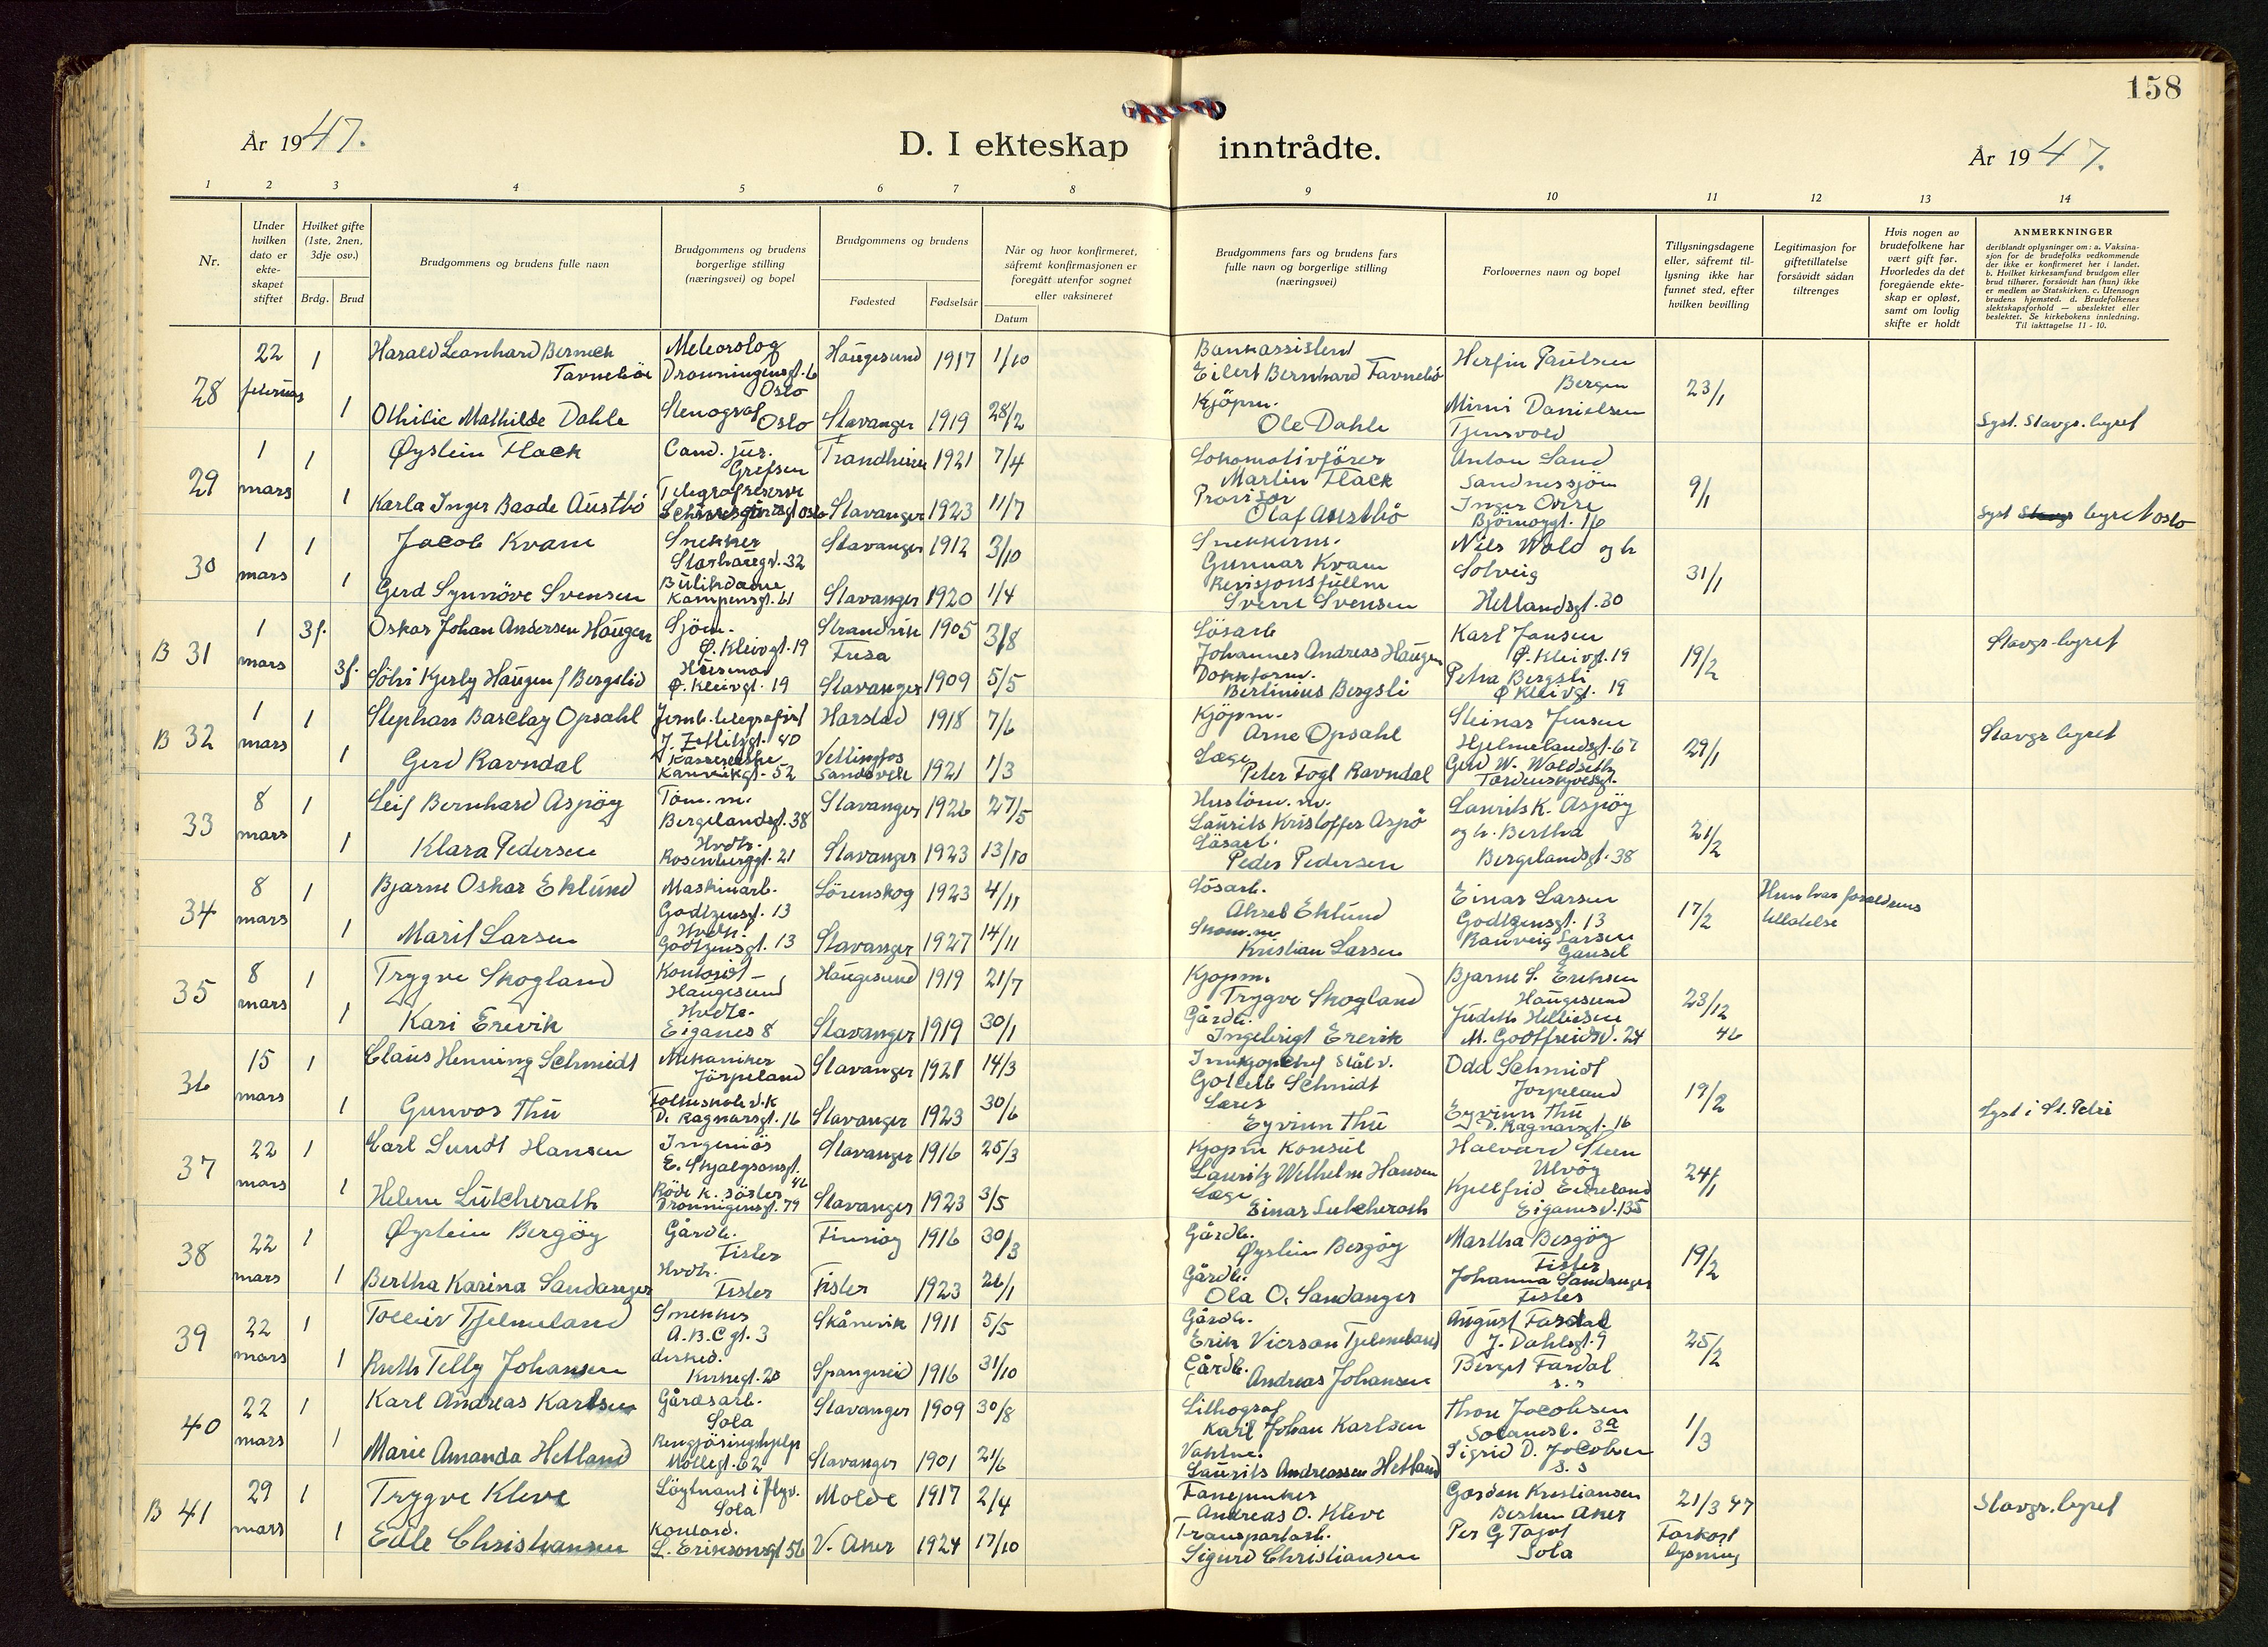 158
År 1947.
D. I ekteskap inntrådte.
År 1947.
1 2 3 4 5 6 7 8 9 10 11 12 13 14
Nr.
Under hvilken dato er ekte-skapet stiftet
Hvilket gifte (1ste, 2nen, 3dje osv.)
Brdg. Brud
Brudgommens og brudens fulle navn
Brudgommens og brudens borgerlige stilling (næringsvei) og bopel
Brudgommens og brudens
Fødested Fødselsår
Når og hvor konfirmeret, såfremt konfirmasjonen er foregått utenfor sognet eller vaksineret
Datum
Brudgommens fars og brudens fars fulle navn og borgerlige stilling (næringsvei)
Forlovernes navn og bopel
Tillysningsdagene eller, såfremt til-lysning ikke har funnet sted, efter hvilken bevilling
Legitimasjon for giftetillatelse forsåvidt sådan tiltrenges
Hvis nogen av brudefolkene har vært gift før. Hvorledes da det foregående ekte-skap er opløst, samt om lovlig skifte er holdt
ANMERKNINGER
deriblandt oplysninger om: a. Vaksina-sjon for de brudefolks vedkommende der ikke er konfirmeret her i landet. b. Hvilket kirkesamfund brudgom eller brud tilhører, forsåvidt han (hun) ikke er medlem av Statskirken. c. Utensogn brudens hjemsted. d. Brudefolkenes slektskapsforhold — ubeslektet eller beslektet. Se kirkebokens innledning. Til iakttagelse 11 - 10.
28 22 februar 1 Harald Leonhard Bernech Tavneböe Meteorolog Dronningensgt. 6 Oslo Haugesund 1917 1/10 Bankassistent Eilert Bernhard Favnebö Herfin Paulsen Bergen 23/1
1 Othilie Mathilde Dahle Stenograf Oslo Stavanger 1919 28/2 Kjöpm. Ole Dahle Mimi Danielsen Tjensvold Lyst. Stavgr. byret
29 1 mars 1 Øystein Flack Cand. jur. Grefsen Trondheim 1921 7/4 Lokomotivförer Martin Flack Anton Sand Sandnessjöen 9/1
1 Karla Inger Baade Austbö Telegrafreserve Oslo Stavanger 1923 11/7 Provisor Olaf Austbö Inger Bjørnøygt. 16 Lyst byret Oslo
30 1 mars 1 Jacob Kvam Snekker Storhaugv. 32 Stavanger 1912 3/10 Snekkerm. Gunnar Kvam Nils Wold og h Solveig 31/1
1 Gerd Synnöve Svensen Butikdame Kampensgt. 61 Stavanger 1920 1/4 Revisjonsfullm Sverre Svensen Hetlandsgt. 30
B 31 1 mars 3f. Oskar Johan Andersen Haugen Sjöm. Ø. Kleivgt. 19 Strandvik Fusa 1905 3/8 Lösarb Johannes Andreas Haugen Karl Jansen Ø. Kleivgt. 19 19/2 Stavgr. byret
3f. Sölvi Kjerly Haugen f Bergslid Husmor Ø. Kleivgt. 19 Stavanger 1909 5/5 Bertinius Bergsli Petra Bergsli Ø Kleivgt. 19
B 32 1 mars 1 Stephan Barclay Opsahl Jernb. telegrafist J. Zetlitzgt. 40 Harstad 1918 7/6 Kjöpm. Arne Opsahl Steinar Jensen Hjelmelandsgt. 67 29/1 Stavgr byret
1 Gerd Ravndal Kannikgt. 52 Vettingfos 1921 1/3 Læge Peter Fogt Ravndal Gerd W. Waldseth
33 8 mars 1 Leif Bernhard Aspöy Töm. m. Bergelandsgt. 38 Stavanger 1926 27/5 Hustöm. m. Laurits Kristoffer Aspö Laurits K. Aspöy og h. Bertha Bergelandsgt. 38 21/2
1 Klara Pedersen Hvdtr. Rosenberggt. 21 Stavanger 1923 13/10 Lösarb. Peder Pedersen
34 8 mars 1 Bjarne Oskar Eklund Maskinarb. Godtzensgt. 13 Lörenskog 1923 4/11 Lösarb. Aksel Eklund Einar Larsen Godtzensgt. 13 17/2 Hun har foreldrenes tillatelse
1 Marit Larsen Hvdtr. Godtzensgt. 13 Stavanger 1927 14/11 Skom. m. Kristian Larsen Rannveig Larsen Gausel
35 8 mars 1 Trygve Skogland Kontorist Haugesund Haugesund 1919 21/7 Kjöpm. Trygve Skogland Bjarne S. Eriksen Haugesund 23/12 46
1 Kari Erevik Hvdtr. Eiganes 8 Stavanger 1919 30/1 Gårdbr. Ingebrigt Erevik Judith Hellesen M. Godtfreidsv. 24
36 15 mars 1 Claus Henning Schmidt Mekaniker Jörpeland Stavanger 1921 14/3 Innkjöpschef Stålv. Gottlieb Schmidt Odd Schmidt Jorpeland 19/2
1 Gunvor Thu D. Ragnarsgt. 16 Stavanger 1923 30/6 Lærer Eyvinn Thu Eyvinn Thu D. Ragnarsgt. 16 Lyst i St. Petri
37 22 mars 1 Carl Sundt Hansen Ingeniör E. Skjalgsonsgt. 46 Stavanger 1916 25/3 Kjöpm Konsul Lauritz Wilhelm Hansen Halvard Steen Ulvöy 24/1
1 Helene Lütcherath Röde K. söster Dronningensgt. 79 Stavanger 1923 3/5 Læge Einar Lutcherath Kjellfrid Eikeland Eiganesv. 135
38 22 mars 1 Øystein Bergöy Gårdb. Fister Finnöy 1916 30/3 Gårdb. Øystein Bergöy Martha Bergöy Fister 19/2
1 Bertha Karina Sandanger Hvdtr. Fister Fister 1923 26/1 Gårdb. Ola O. Sandanger Johanna Sandanger Fister
39 22 mars 1 Tolleiv Tjelmeland Snekker A.B.C gt. 3 Skånevik 1911 5/5 Gårdb. Erik Vierson Tjelmeland August Fardal J. Dahlsgt. 9 25/2
1 Ruth Telly Johansen Kirkegt. 20 Spangereid 1916 31/10 Gårdb. Andreas Johansen Berget Fardal s. s
40 22 mars 1 Karl Andreas Karlsen Gårdsarb. Sola Stavanger 1909 30/8 Lithograf Karl Johan Karlsen Thon Jacobsen Solandsb. 3a 1/3
1 Marie Amanda Hetland Rengjöringshjelp Möllegt. 62 Stavanger 1901 21/6 Laurits Andreassen Hetland Sigrid D. Jacobsen s. s
B 41 29 mars 1 Trygve Kleve Löytnant i flyv. Sola Molde 1917 2/4 Fanejunker Andreas O. Kleve Gordon Kristiansen Bestum Aker 21/3 47 Stavgr. byret
1 Edle Christiansen Kontord. L. Eriksonsgt 56 V. Aker 1924 17/10 Transportarb. Sigurd Christiansen Per G Sola Forkort lysning